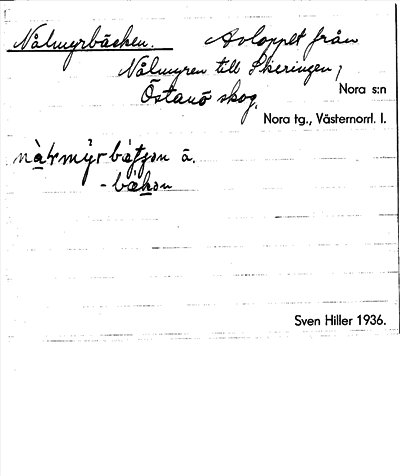 Nålmyrbäcken. Avloppet från
Nålmyren till Skeringen,
Östanö skog. Nora s:n
Nora tg., Västernorrl. l.
ā.
Sven Hiller 1936.